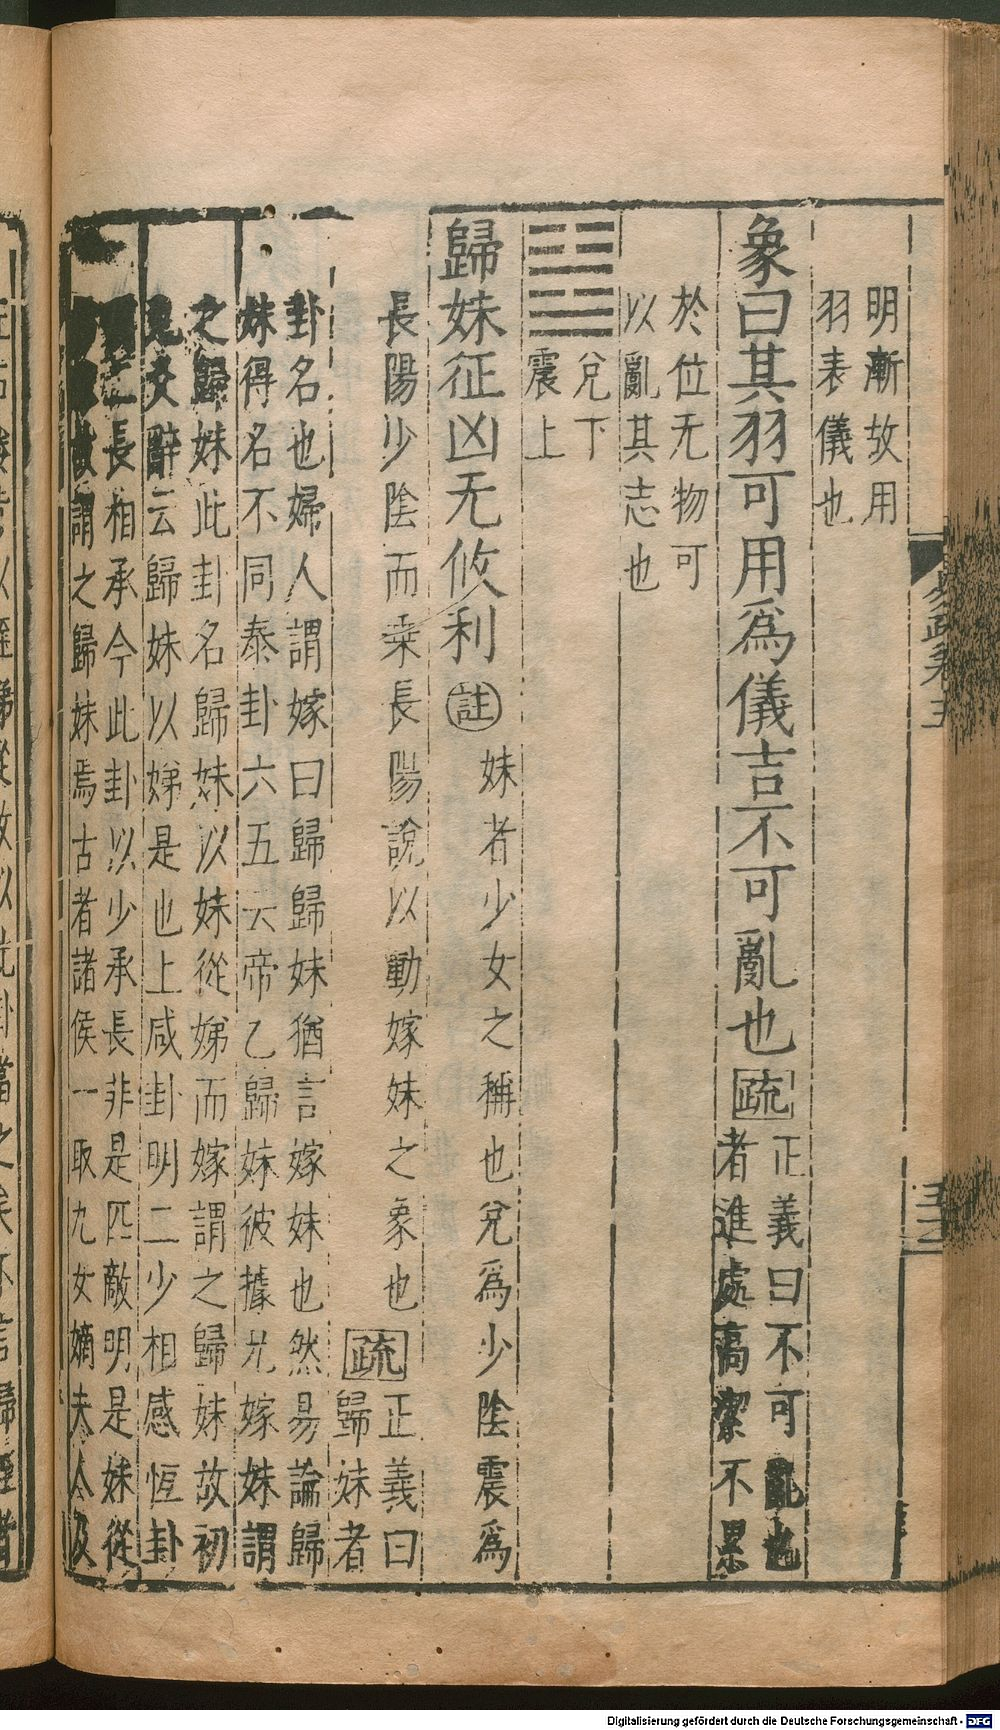 明漸故用
羽表儀也
象曰其羽可用爲儀吉不可亂也疏正義曰不可亂也
者進處高潔不累
於位无物可
以亂其志也
䷵兌下
震上
歸妹征凶无攸利註妹者少女之稱也兌爲少陰震爲
長陽少陰而乗長陽說以動嫁妹之象也疏正義曰
歸妹者
卦名也婦人謂嫁曰歸歸妹猶言嫁妹也然易論歸
妹得名不同泰卦六五云帝乙歸妹彼據兄嫁妹謂
之歸妹此卦名歸妹以妹從娣而嫁謂之歸妹故初
九爻辭云歸妹以娣是也上咸卦明二少相感恒卦
二長相承今此卦以少承長非是匹敵明是妹從
故謂之歸妹焉古者諸侯一取九女嫡夫人及
五
Digitalisierung gefördert durch die Deutsche Forschungsgemeinschaft - DFG